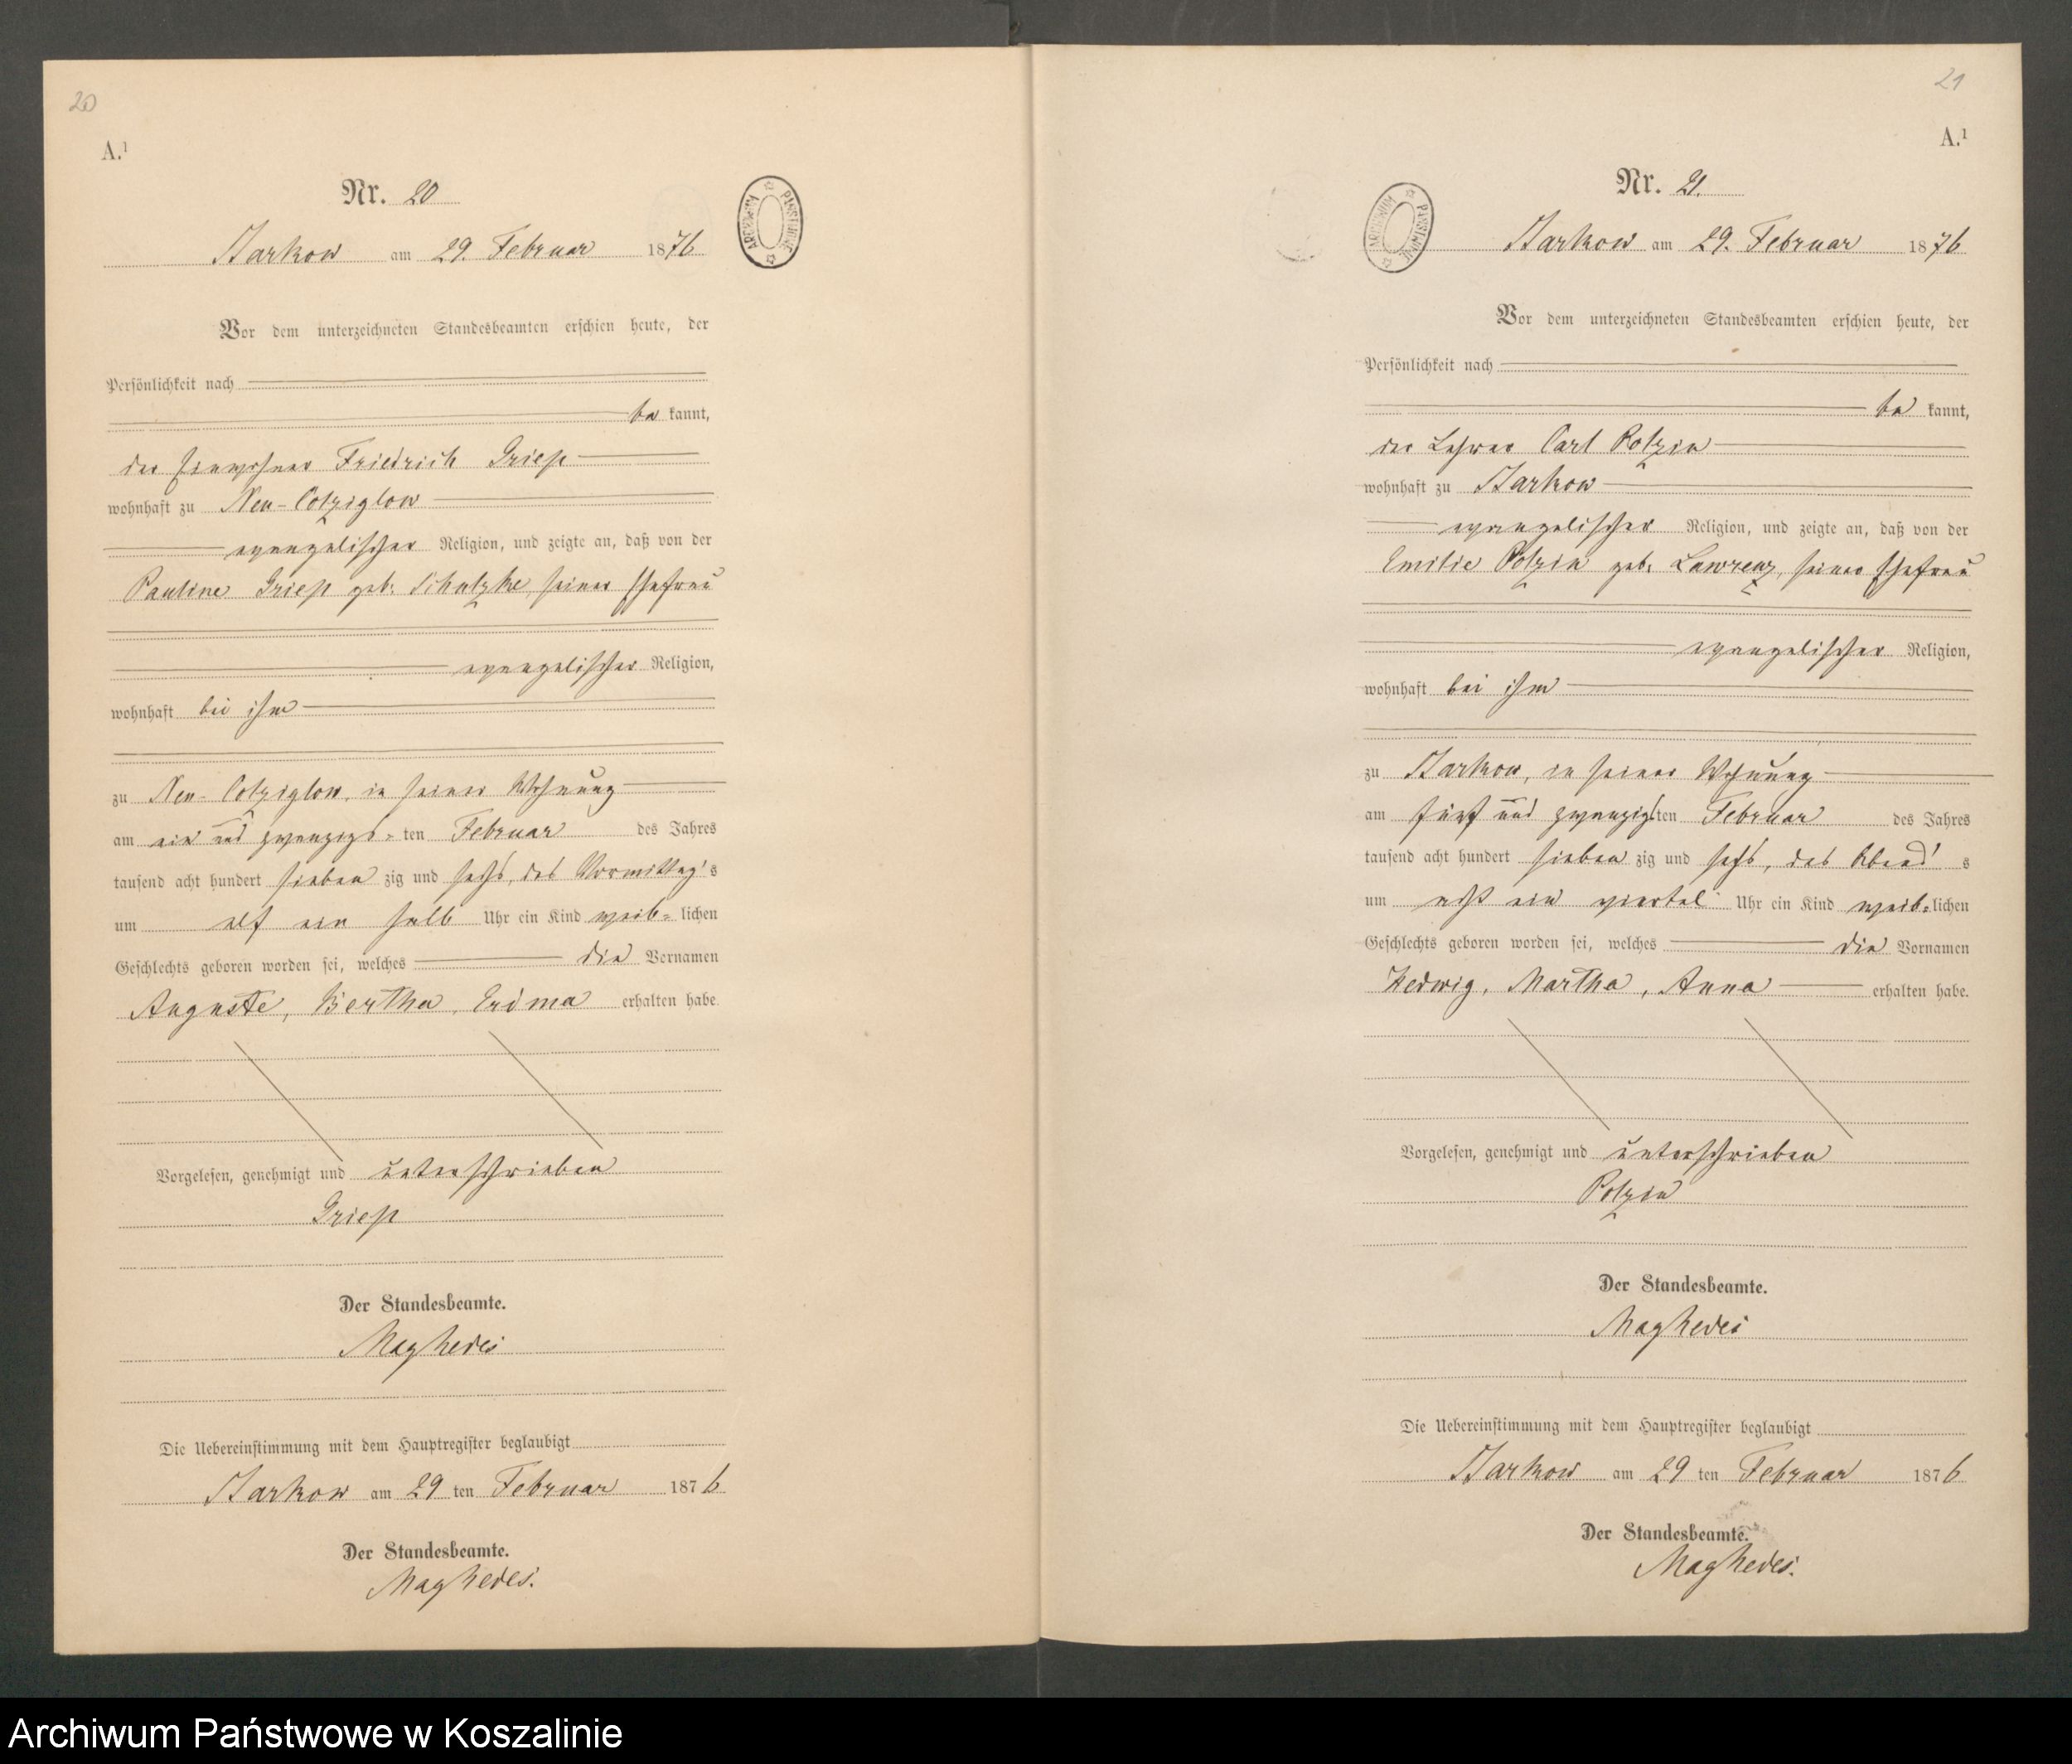 20
A.¹
Nr. 20
Starkow am 29. Februar 1876
Vor dem unterzeichneten Standesbeamten erschien heute, der
Persönlichkeit nach
be kannt,
der Einwohner Friedrich Griep
wohnhaft zu Neu-Colziglow
evangelischer Religion, und zeigte an, daß von der
Pauline Griep geb. Schulzke, seiner Ehefrau
evangelischer Religion,
wohnhaft bei ihm
zu Neu-Colziglow, in seiner Wohnung
am ein und zwanzigs-ten Februar des Jahres
tausend acht hundert sieben zig und sechs, des Vormittag's
um elf ein halb Uhr ein Kind weib-lichen
Geschlechts geboren worden sei, welches die Vornamen
Auguste, Bertha, Erdma erhalten habe.
Vorgelesen, genehmigt und unterschrieben
Griep
Der Standesbeamte.
Die Uebereinstimmung mit dem Hauptregister beglaubigt
Starkow am 29 ten Februar 1876
Der Standesbeamte.
ARCHIWUM PAŃSTWOWE
21
A.¹
Nr. 21.
Starkow am 29. Februar 1876
Vor dem unterzeichneten Standesbeamten erschien heute, der
Persönlichkeit nach
be kannt,
der Lehrer Carl Polzin
wohnhaft zu Starkow
evangelischer Religion, und zeigte an, daß von der
Emilie Polzin geb. Lawrenz, seiner Ehefrau
evangelischer Religion,
wohnhaft bei ihm
zu Starkow, in seiner Wohnung
am fünf und zwanzigsten Februar des Jahres
tausend acht hundert sieben zig und sechs, des Abend's
um acht ein viertel Uhr ein Kind weib-lichen
Geschlechts geboren worden sei, welches die Vornamen
Hedwig, Martha, Anna erhalten habe.
Vorgelesen, genehmigt und unterschrieben
Polzin
Der Standesbeamte.
Die Uebereinstimmung mit dem Hauptregister beglaubigt
Starkow am 29 ten Februar 1876
Der Standesbeamte.
ARCHIWUM PAŃSTWOWE
Archiwum Państwowe w Koszalinie